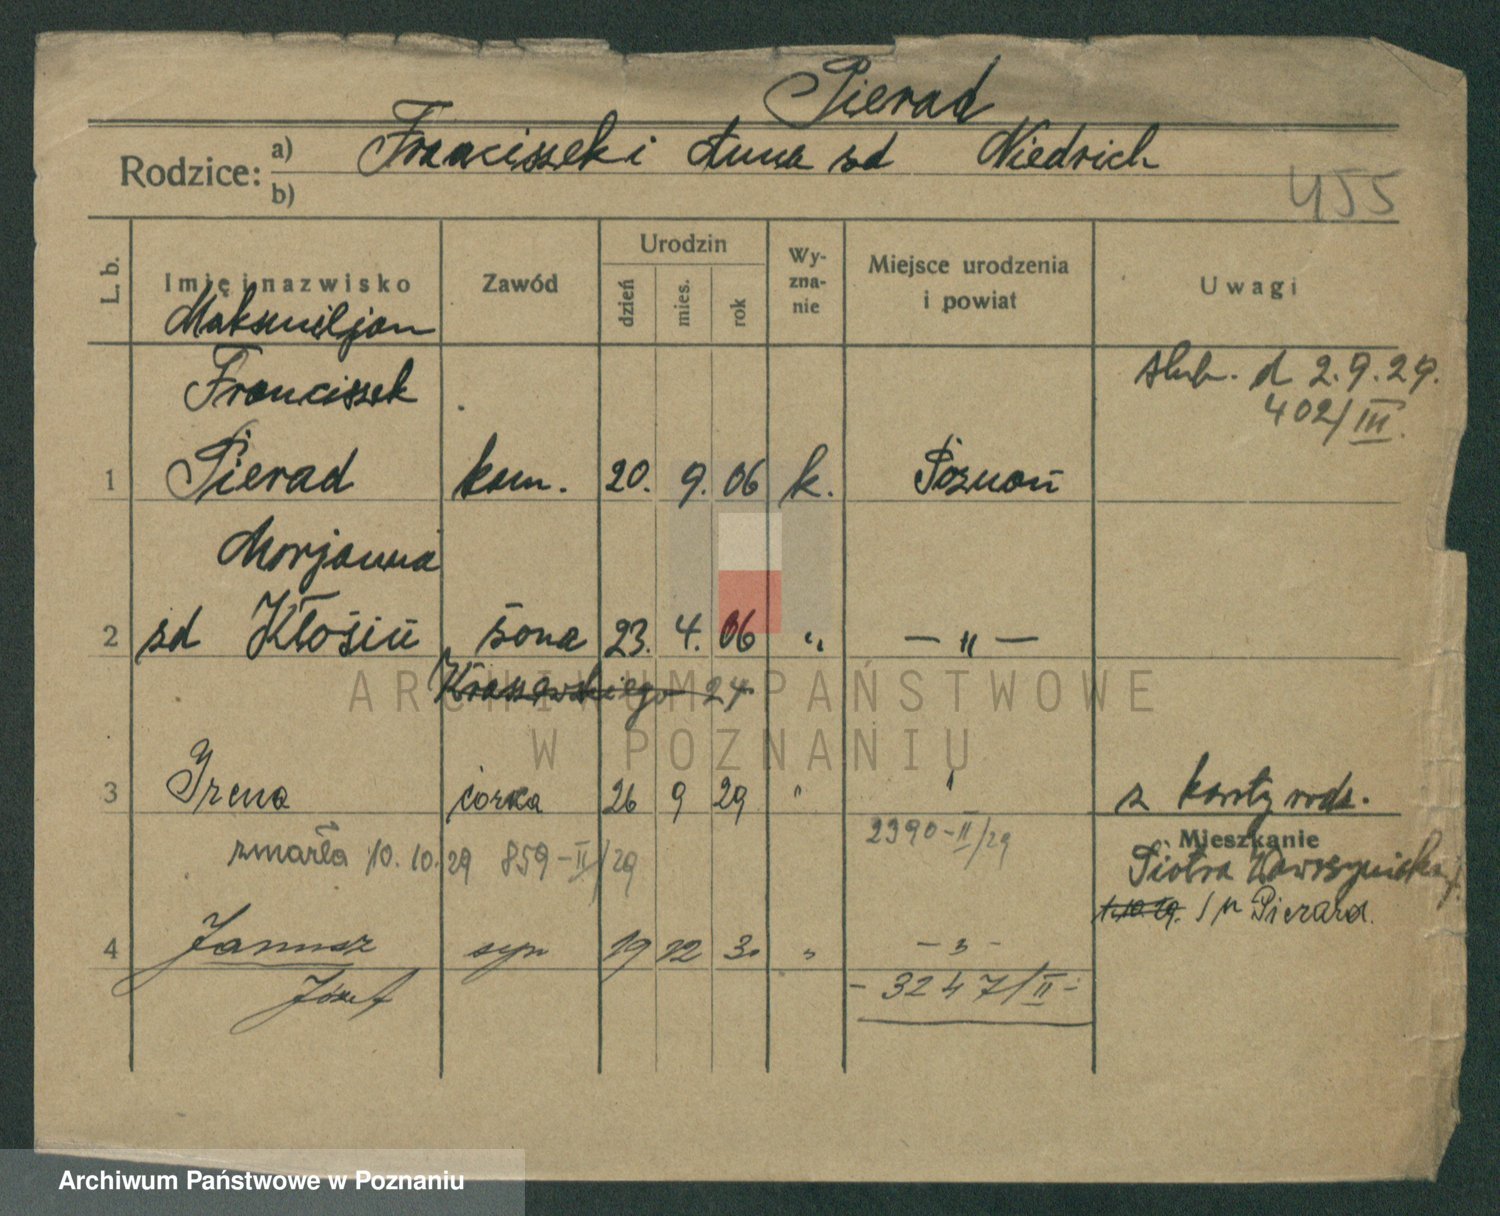 Pierad
Rodzice: a) Franciszek i Anna zd Niedrich
b)
455
L. b. Imię i nazwisko Zawód Urodzin dzień mies. rok Wyznanie Miejsce urodzenia i powiat Uwagi
Maksmiljan
Franciszek ślub. d 2.9.29.
402/III.
1 Pierad kom. 20. 9. 06 k. Poznań
Marjanna
2 zd Kłosiń żona 23. 4. 06 " — " —
Kraszewskiego 24.
3 Irena córka 26 9 29 " " z karty rodz.
zmarła 10.10.29 859-II/29 2390-II/29
Mieszkanie
Piotra Wawrzyniaka
1.10.29. Pierard.
4 Janusz syn 19 12 30 " - " -
Józef - 3247/II -
ARCHIWUM PAŃSTWOWE
W POZNANIU
Archiwum Państwowe w Poznaniu